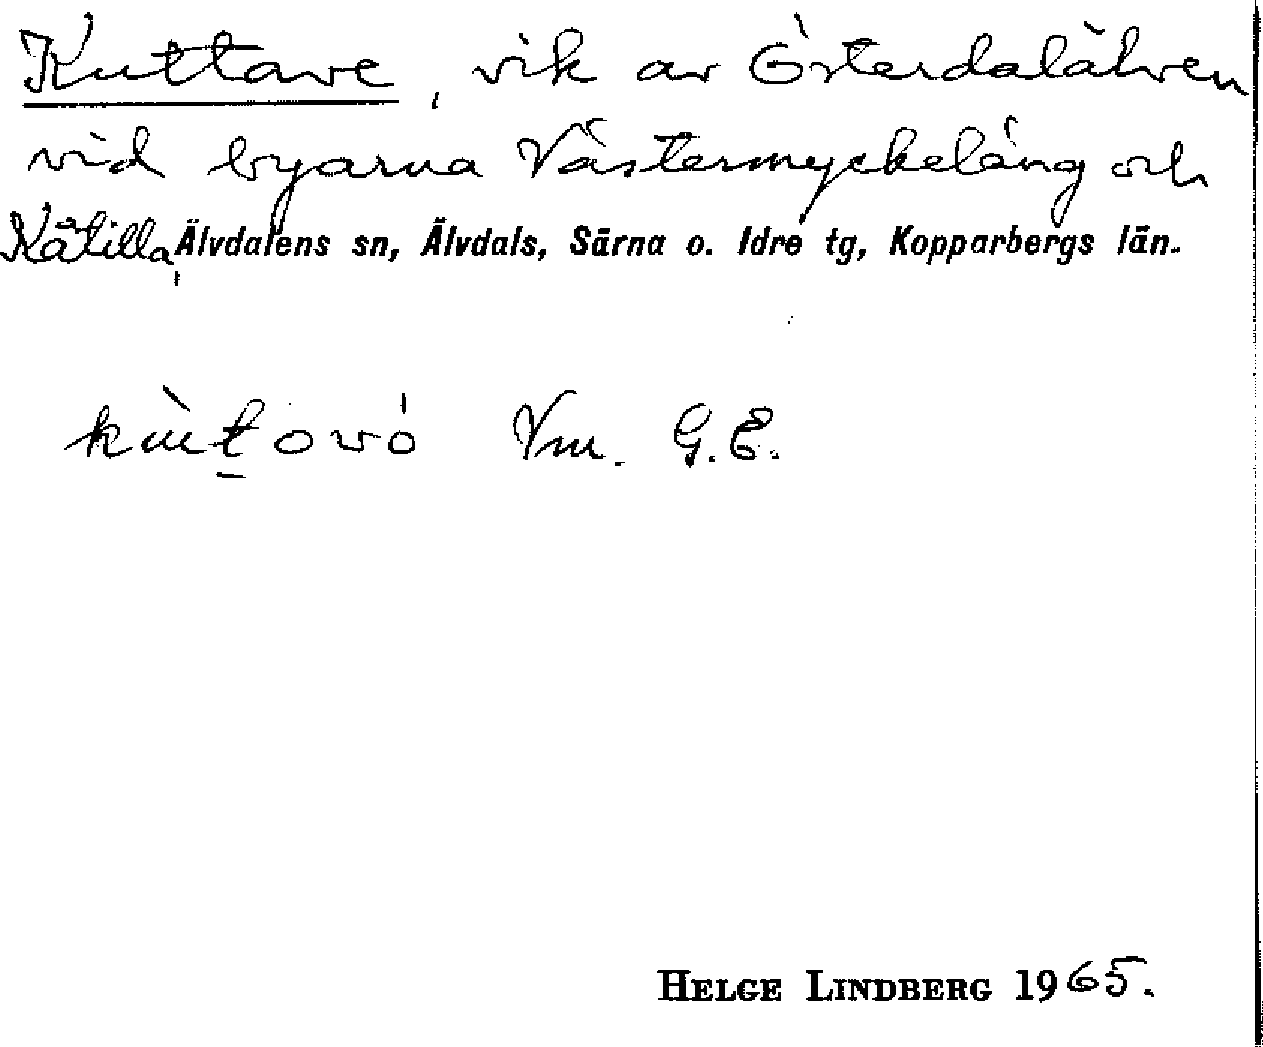 Kuttave, vik av Österdalälven
vid byarna Västermyckeläng och
Kåtilla, Älvdalens sn, Älvdals, Särna o. Idre tg, Kopparbergs län.
Vm. G.E.
HELGE LINDBERG 1965.